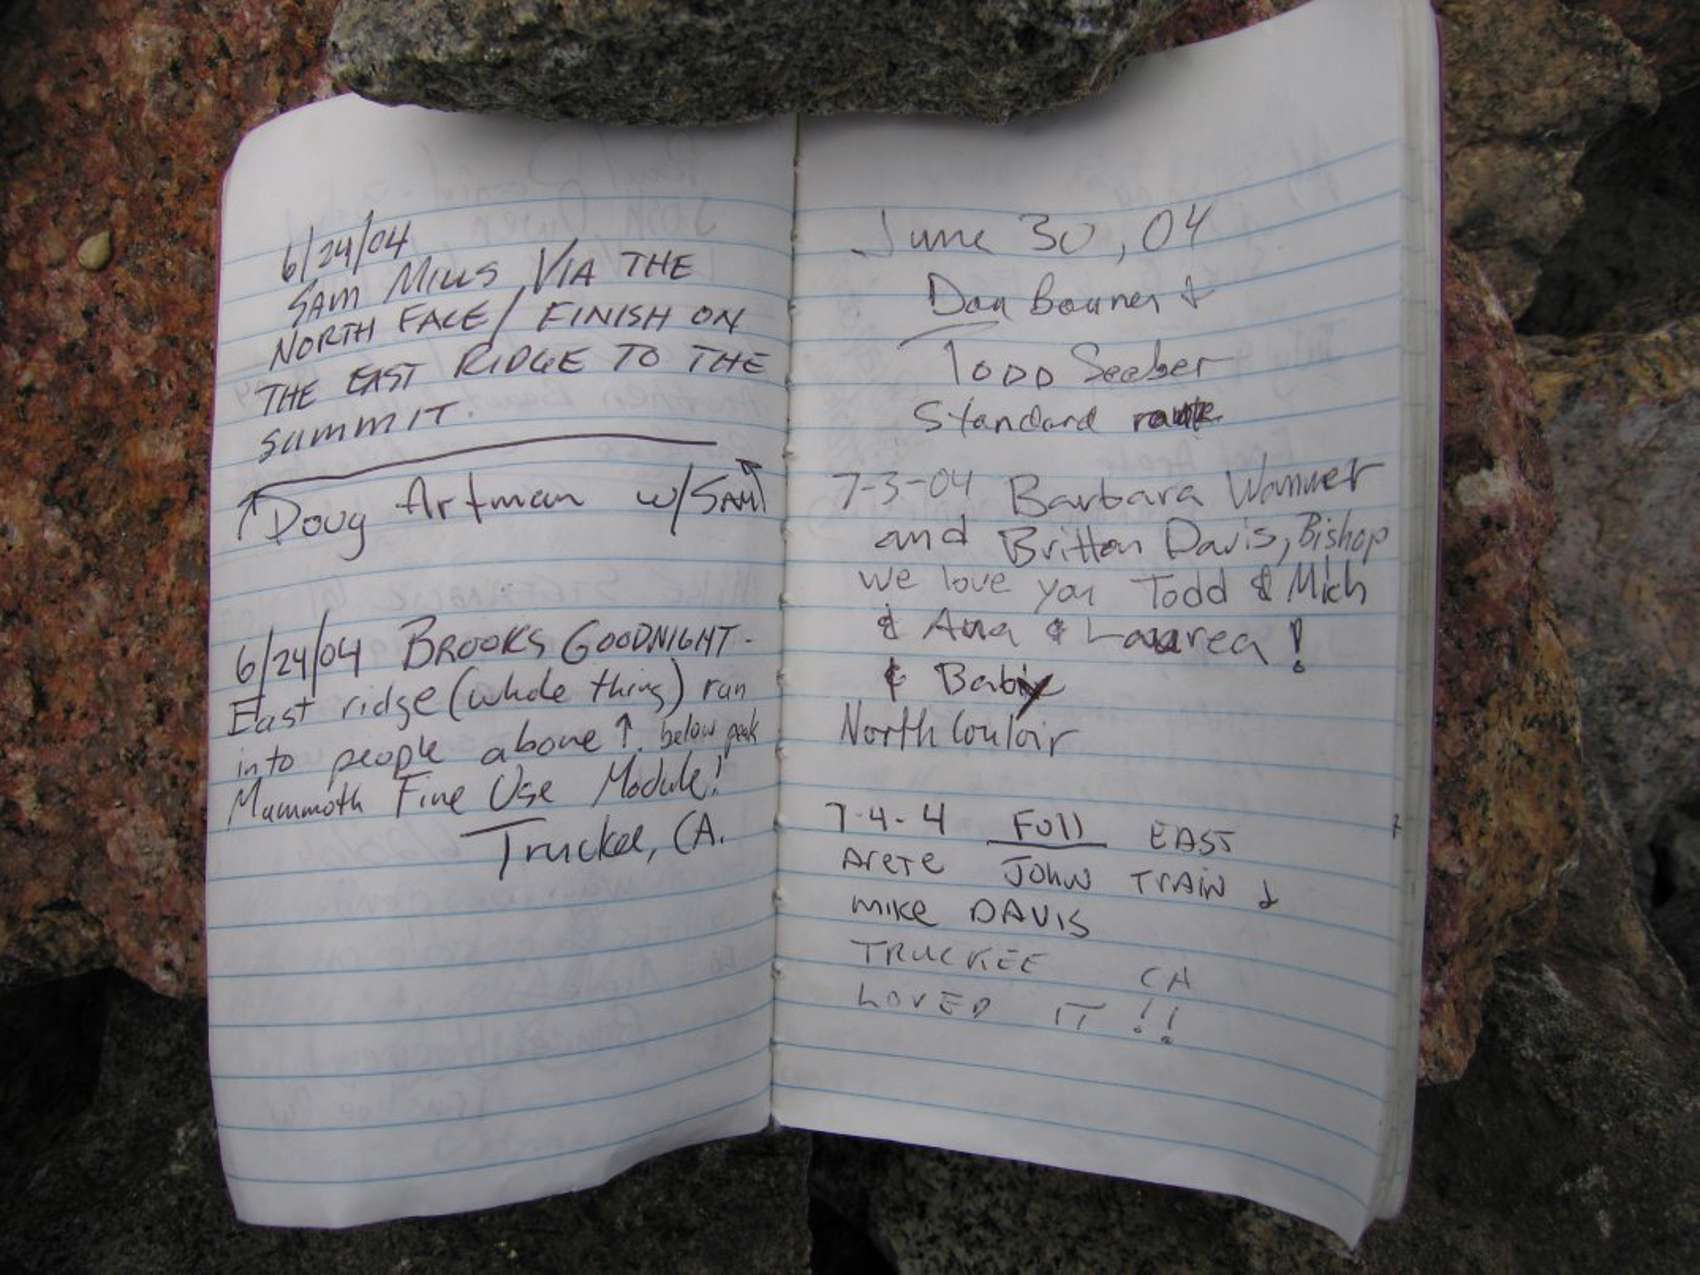 6/24/04
SAM MILLS VIA THE
NORTH FACE/ FINISH ON
THE EAST RIDGE TO THE
SUMMIT.
↑Doug Artman w/SAM↑
6/24/04 BROOKS GOODNIGHT-
East ridge (whole thing) ran
into people above ↑. below peak
Mammoth Fire Use Module!
Truckee, CA.
June 30, 04
Dan &
TODD Seeber
Standard route
7-3-04 Barbara Wanner
and Britton Davis, Bishop
we love you Todd & Mich
& Ana & Laurea!
& Baby
North Couloir
7-4-4 Full EAST
Arete JOHN TRAIN &
mike DAVIS
TRUCKEE CA
LOVED IT!!